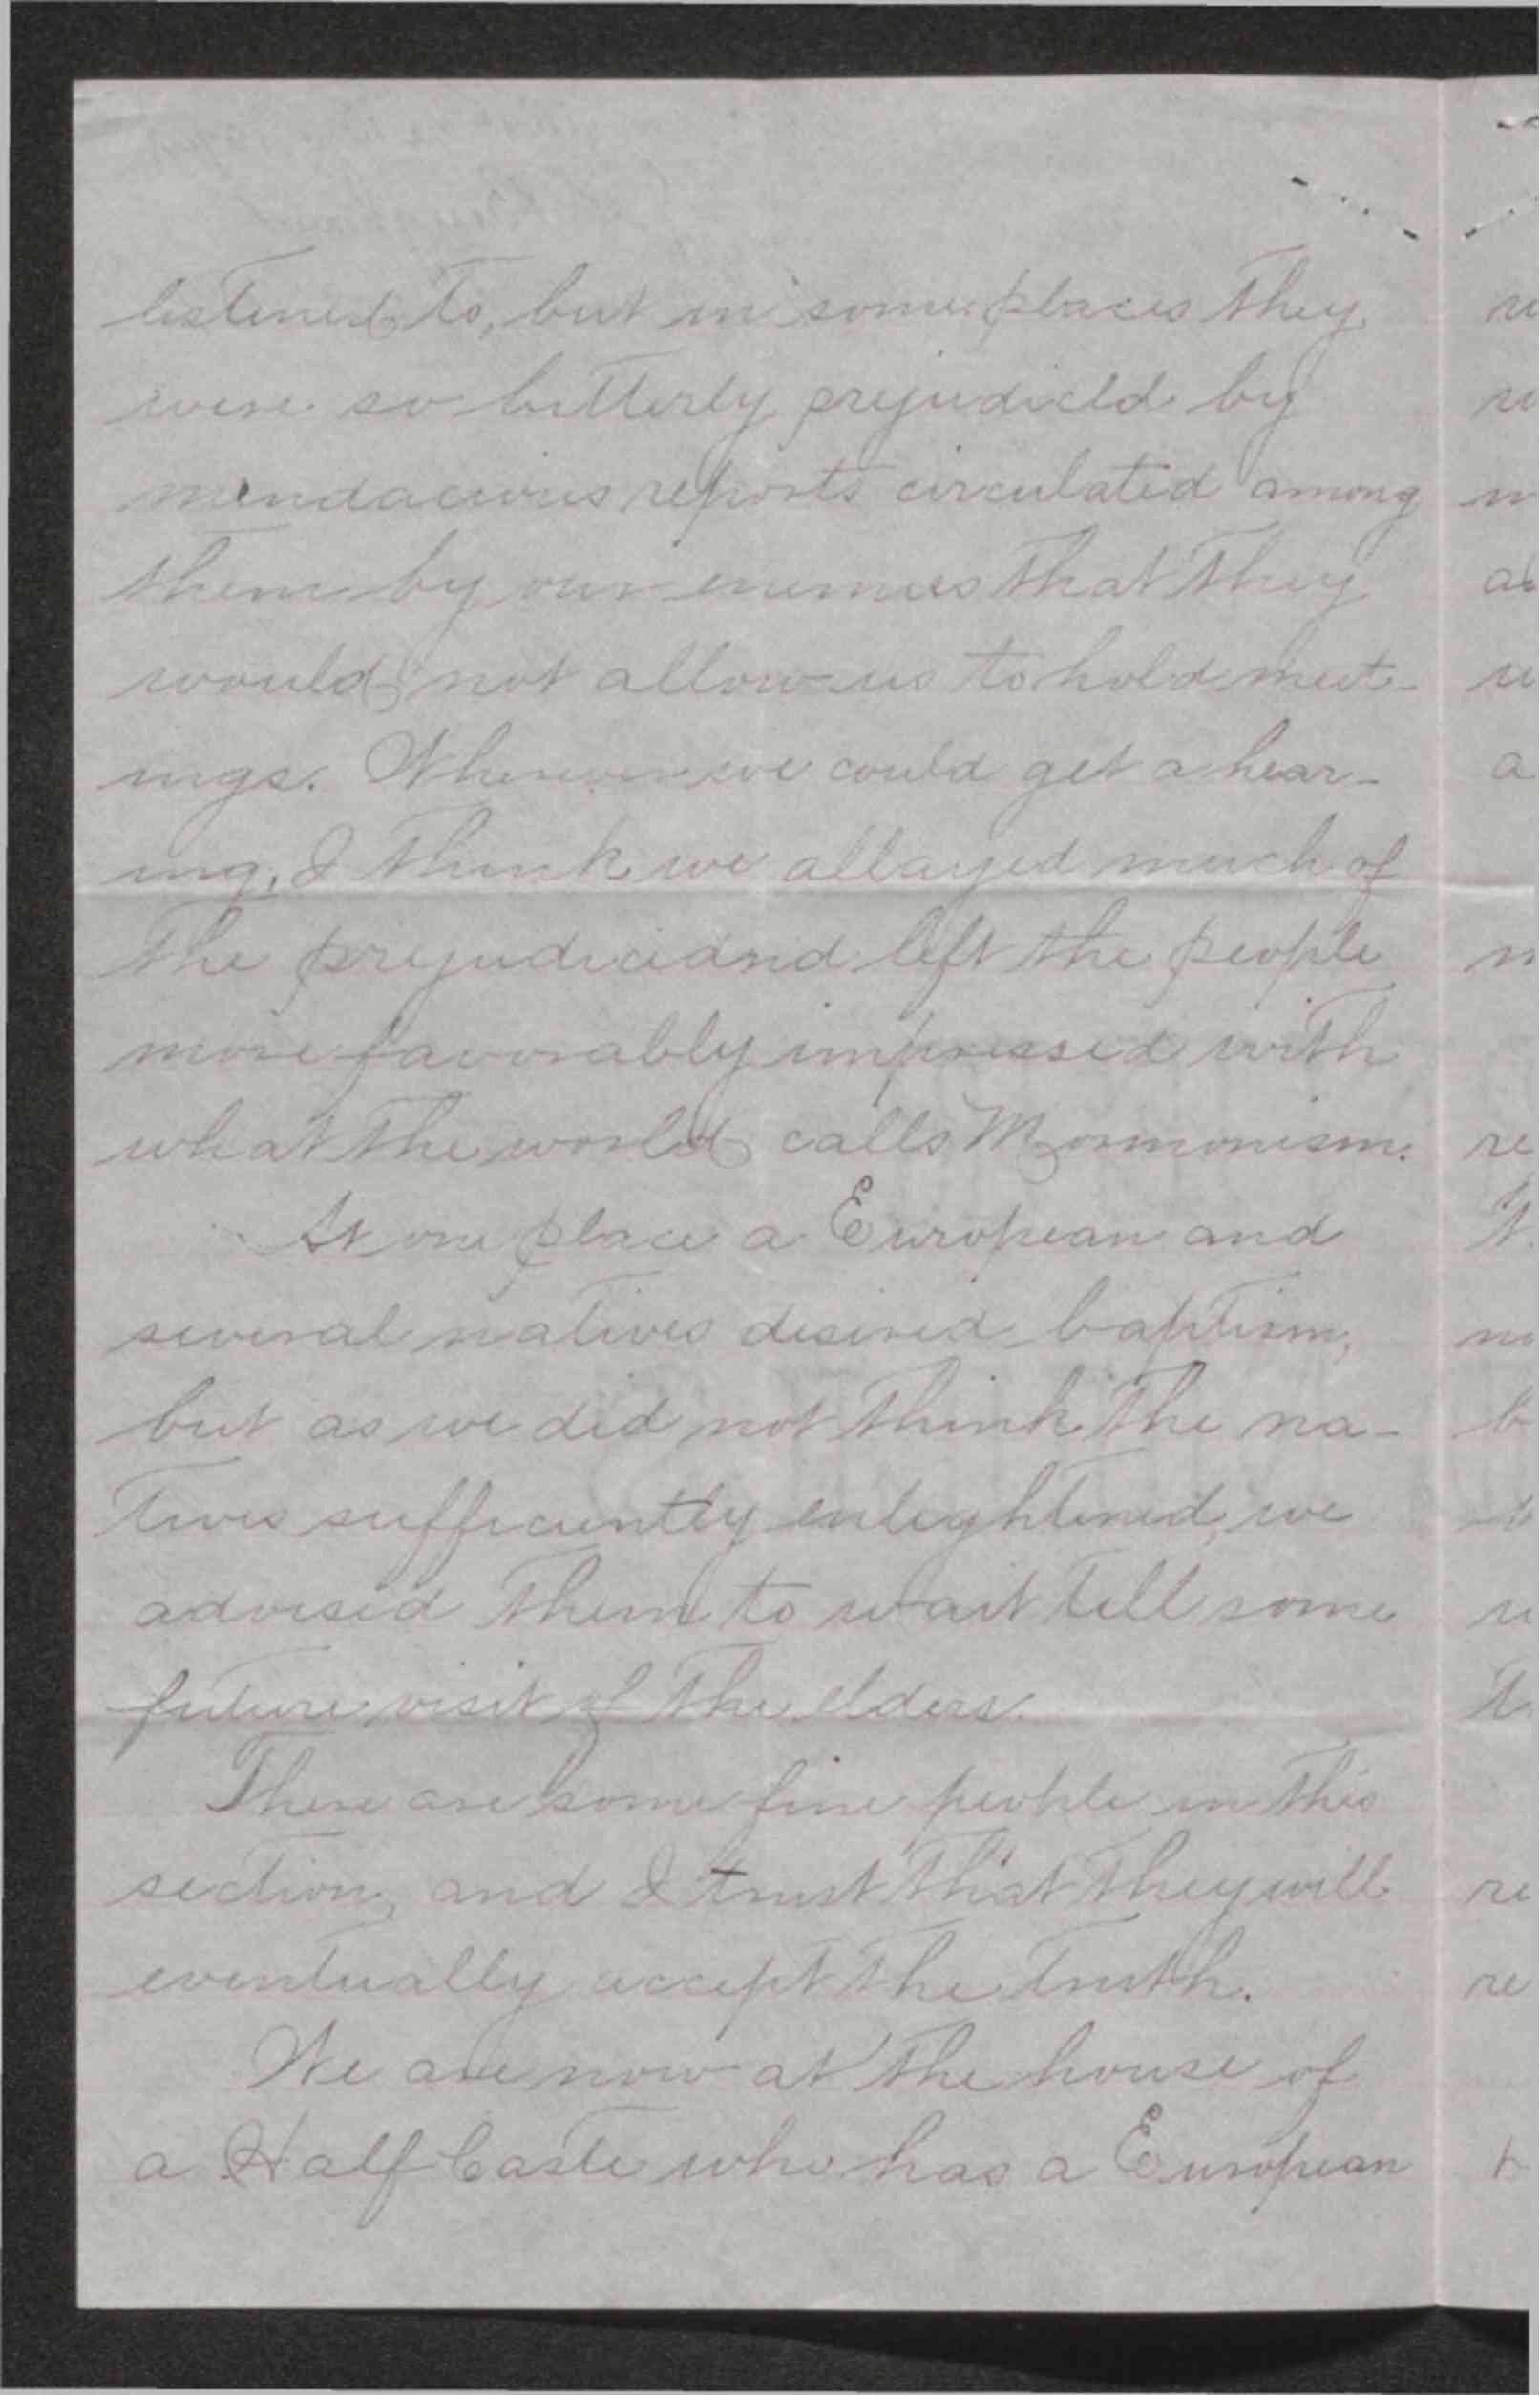 listened to, but in some places they
were so bitterly prejudiced by
mendacious reports circulated among
them by our enemies that they
would not allow us to hold meet-
ings. Wherever we could get a hear-
ing, I think we allayed much of
the prejudice and left the people
more favorably impressed with
what the world calls Mormonism.
At one place a European and
several natives desired baptism,
but as we did not think the na-
tives sufficiently enlightened, we
advised them to wait till some
future visit of the elders.
There are some fine people in this
section, and I trust that they will
eventually accept the truth.
We are now at the house of
a Half Caste who has a European